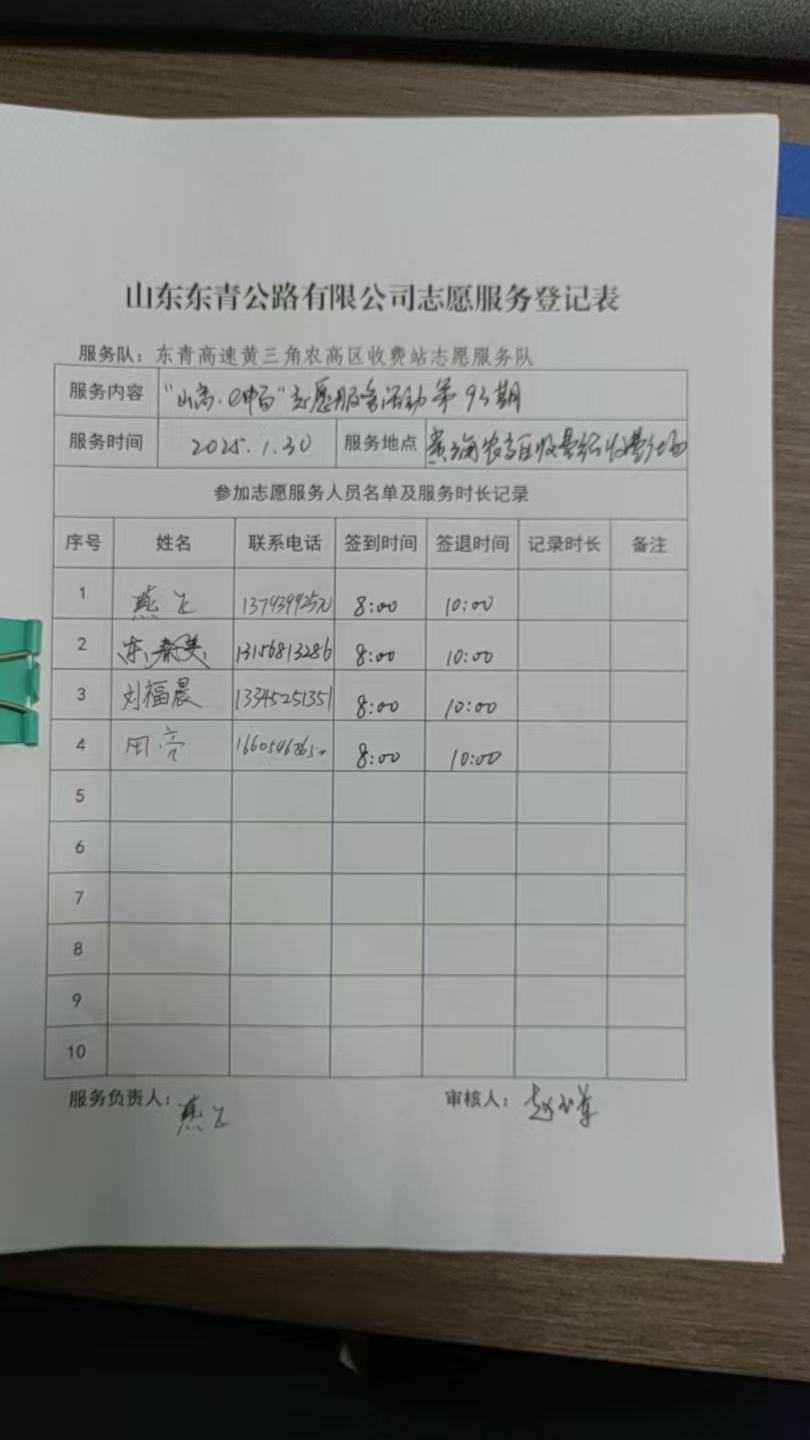 山东东青公路有限公司志愿服务登记表
服务队：东青高速黄三角农高区收费站志愿服务队
服务内容 "山高·e中百"志愿服务活动第93期
服务时间 2025.1.30 服务地点 黄三角农高区收费站收费广场
参加志愿服务人员名单及服务时长记录
序号 姓名 联系电话 签到时间 签退时间 记录时长 备注
1 燕飞 8:00 10:00
2 13156813286 8:00 10:00
3 刘福晨 13345251351 8:00 10:00
4 田亮 8:00 10:00
5
6
7
8
9
10
服务负责人：燕飞 审核人：